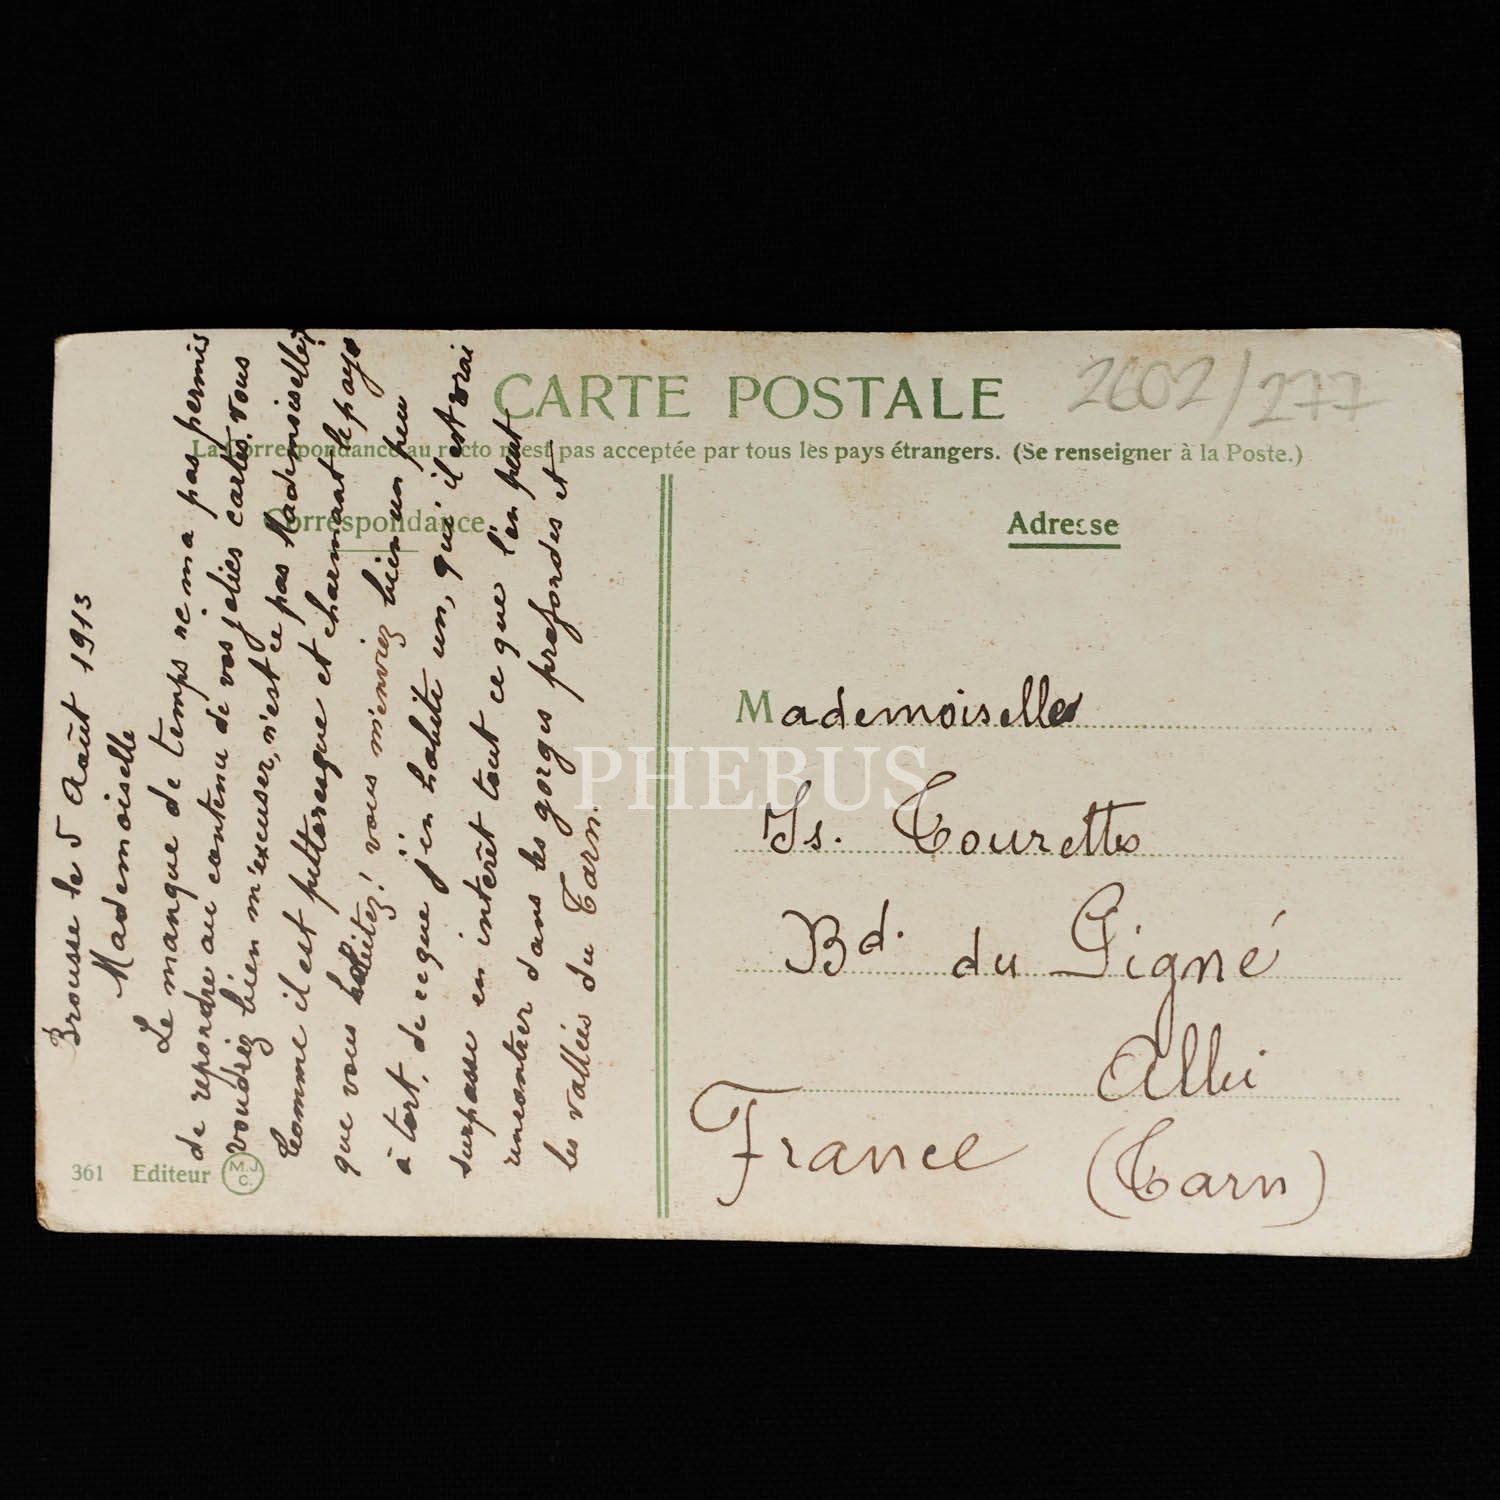 CARTE POSTALE
2602/277
La Correspondance au recto n'est pas acceptée par tous les pays étrangers. (Se renseigner à la Poste.)
Correspondance
Adresse
Brousse le 5 Août 1913
Mademoiselle
Le manque de temps ne m'a pas permis
de repondre au contenu de vos jolies cartes. vous
voudriez bien m'excuser, n'est ce pas Mademoiselle?
Comme il est pittoresque et charmant le pays
que vous habitez! vous m'enviez bien un peu
à tort, de ce que j'en habite un, qui il est vrai
surpasse en intérêt tout ce que l'on peut
rencontrer dans les gorges profondes et
les vallées du Tarn.
Mademoiselle
Is. Tourette
Bd. du Signé
Albi
France (Tarn)
361 Editeur M.J.C.
PHEBUS